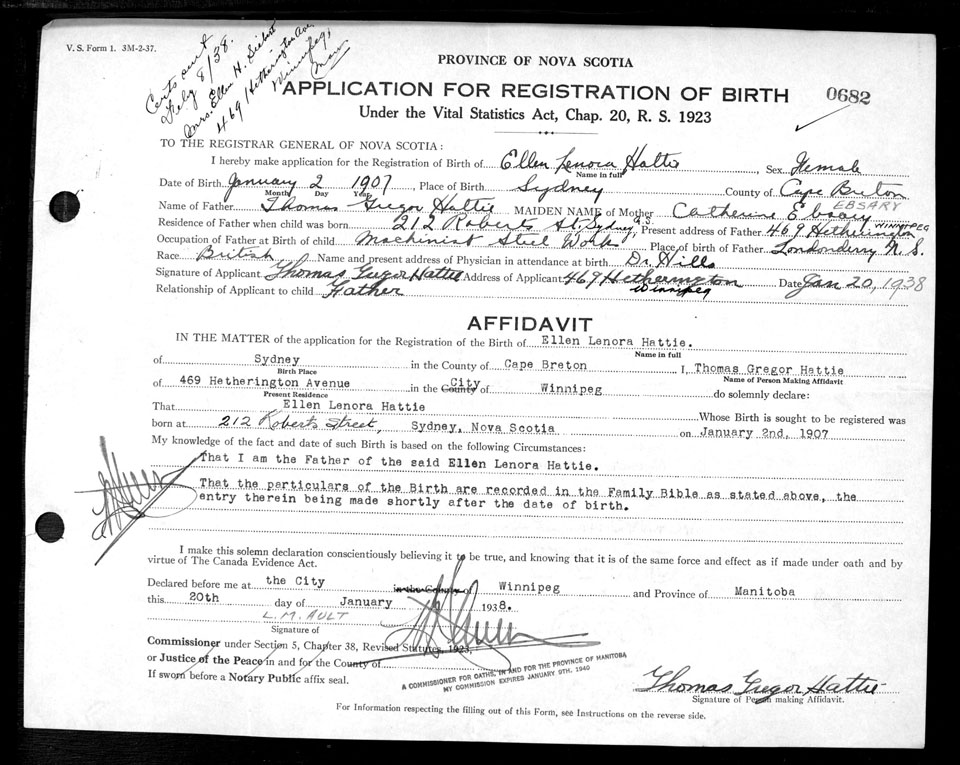 V. S. Form 1. 3M-2-37.
Certs sent
Feby 8/38.
Mrs. Ellen H. Siebert
469 Hetherington Ave
Winnipeg,
Man
PROVINCE OF NOVA SCOTIA
APPLICATION FOR REGISTRATION OF BIRTH
0682
Under the Vital Statistics Act, Chap. 20, R. S. 1923
TO THE REGISTRAR GENERAL OF NOVA SCOTIA:
I hereby make application for the Registration of Birth of Ellen Lenora Hattie Sex Female
Name in full
Date of Birth January 2 1907, Place of Birth Sydney County of Cape Breton
Month Day Year
EBSARY
Name of Father Thomas Gregor Hattie MAIDEN NAME of Mother Catherine Ebsary
WINNIPEG
Residence of Father when child was born 212 Roberts St, Sydney, Present address of Father 469 Hetherington
Occupation of Father at Birth of child Machinist Steel Works Place of birth of Father Londonderry N. S.
Race British Name and present address of Physician in attendance at birth Dr. Hills
Signature of Applicant Thomas Gregor Hattie Address of Applicant 469 Hetherington Date Jan 20, 1938
Winnipeg
Relationship of Applicant to child Father
AFFIDAVIT
IN THE MATTER of the application for the Registration of the Birth of Ellen Lenora Hattie.
Name in full
of Sydney in the County of Cape Breton I, Thomas Gregor Hattie
Birth Place Name of Person Making Affidavit
of 469 Hetherington Avenue in the County City of Winnipeg do solemnly declare:
Present Residence
That Ellen Lenora Hattie Whose Birth is sought to be registered was
born at 212 Roberts Street, Sydney, Nova Scotia on January 2nd, 1907
My knowledge of the fact and date of such Birth is based on the following Circumstances:
That I am the Father of the said Ellen Lenora Hattie.
That the particulars of the Birth are recorded in the Family Bible as stated above, the
entry therein being made shortly after the date of birth.
I make this solemn declaration conscientiously believing it to be true, and knowing that it is of the same force and effect as if made under oath and by
virtue of The Canada Evidence Act.
Declared before me at the City in the County of Winnipeg and Province of Manitoba
this 20th day of January 1938.
L. M. AULT
Signature of
Commissioner under Section 5, Chapter 38, Revised Statutes, 1923,
or Justice of the Peace in and for the County of
A COMMISSIONER FOR OATHS, IN AND FOR THE PROVINCE OF MANITOBA
MY COMMISSION EXPIRES JANUARY 9TH, 1940
If sworn before a Notary Public affix seal.
Thomas Gregor Hattie
Signature of Person making Affidavit.
For Information respecting the filling out of this Form, see Instructions on the reverse side.